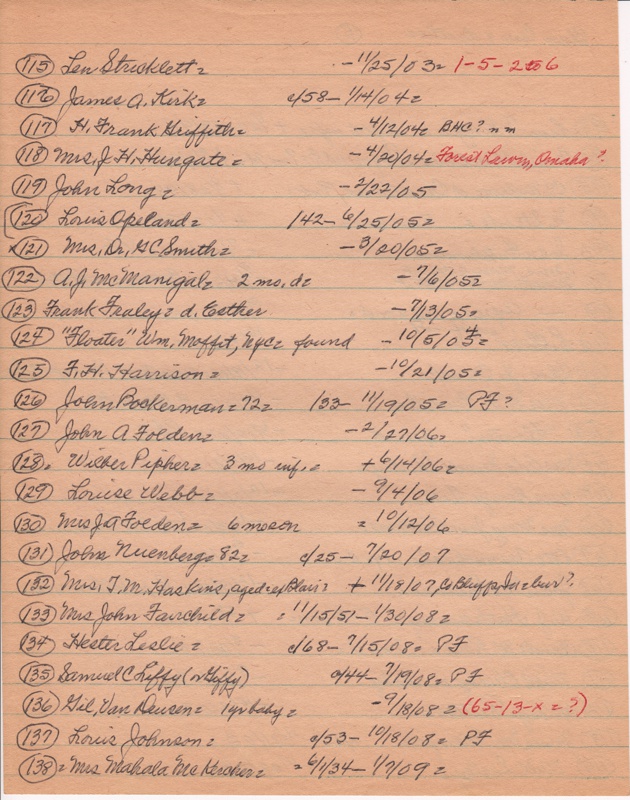 115 Len Stricklett = - 11/25/03 = 1-5-2
116 James A. Kirk = c/58 - 1/14/04 =
117 H. Frank Griffith = - 4/12/04 = BHC? n m
118 Mrs. J. H. Hungate = - 4/20/04 = Forest Lawn, Omaha?
119 John Long = - 2/22/05
120 Louis Opeland = 142 - 6/25/05 =
x 121 Mrs. Dr. G.C. Smith = - 3/20/05 =
122 A. J. McManigal = 2 mo. d = - 7/6/05 =
123 Frank Fraley = d. Esther - 7/13/05 =
124 "Floater" Wm. Moffit, NYC = found - 10/5/05 =
125 F. H. Harrison = - 10/21/05 =
126 John Bockerman = 72 = 133 - 11/19/05 = PF?
127 John A Folden = - 2/27/06 =
128 = Wilber Pipher = 3 mo inf. = + 6/14/06 =
129 Louise Webb = - 9/4/06
130 Mrs J A Folden = 6 mo son = 10/12/06
131 John Nuenberg = 82 = c/25 - 7/20/07
132 Mrs. T. M. Haskins, aged = ex Blair = + 11/18/07, Co Bluffs, Ia = bur?
133 Mrs John Fairchild = = 11/15/51 - 1/30/08 =
134 Hester Leslie = c/68 - 7/15/08 = PF
135 Samuel C Liffy (or Giffy) c/44 - 7/19/08 = PF
136 Gil. Van Deusen = 1 yr baby = - 9/18/08 = (65-13-x = ?)
137 Louis Johnson = c/53 - 10/18/08 = PF
138 = Mrs Mahala McKercher = = 6/1/34 - 1/7/09 =